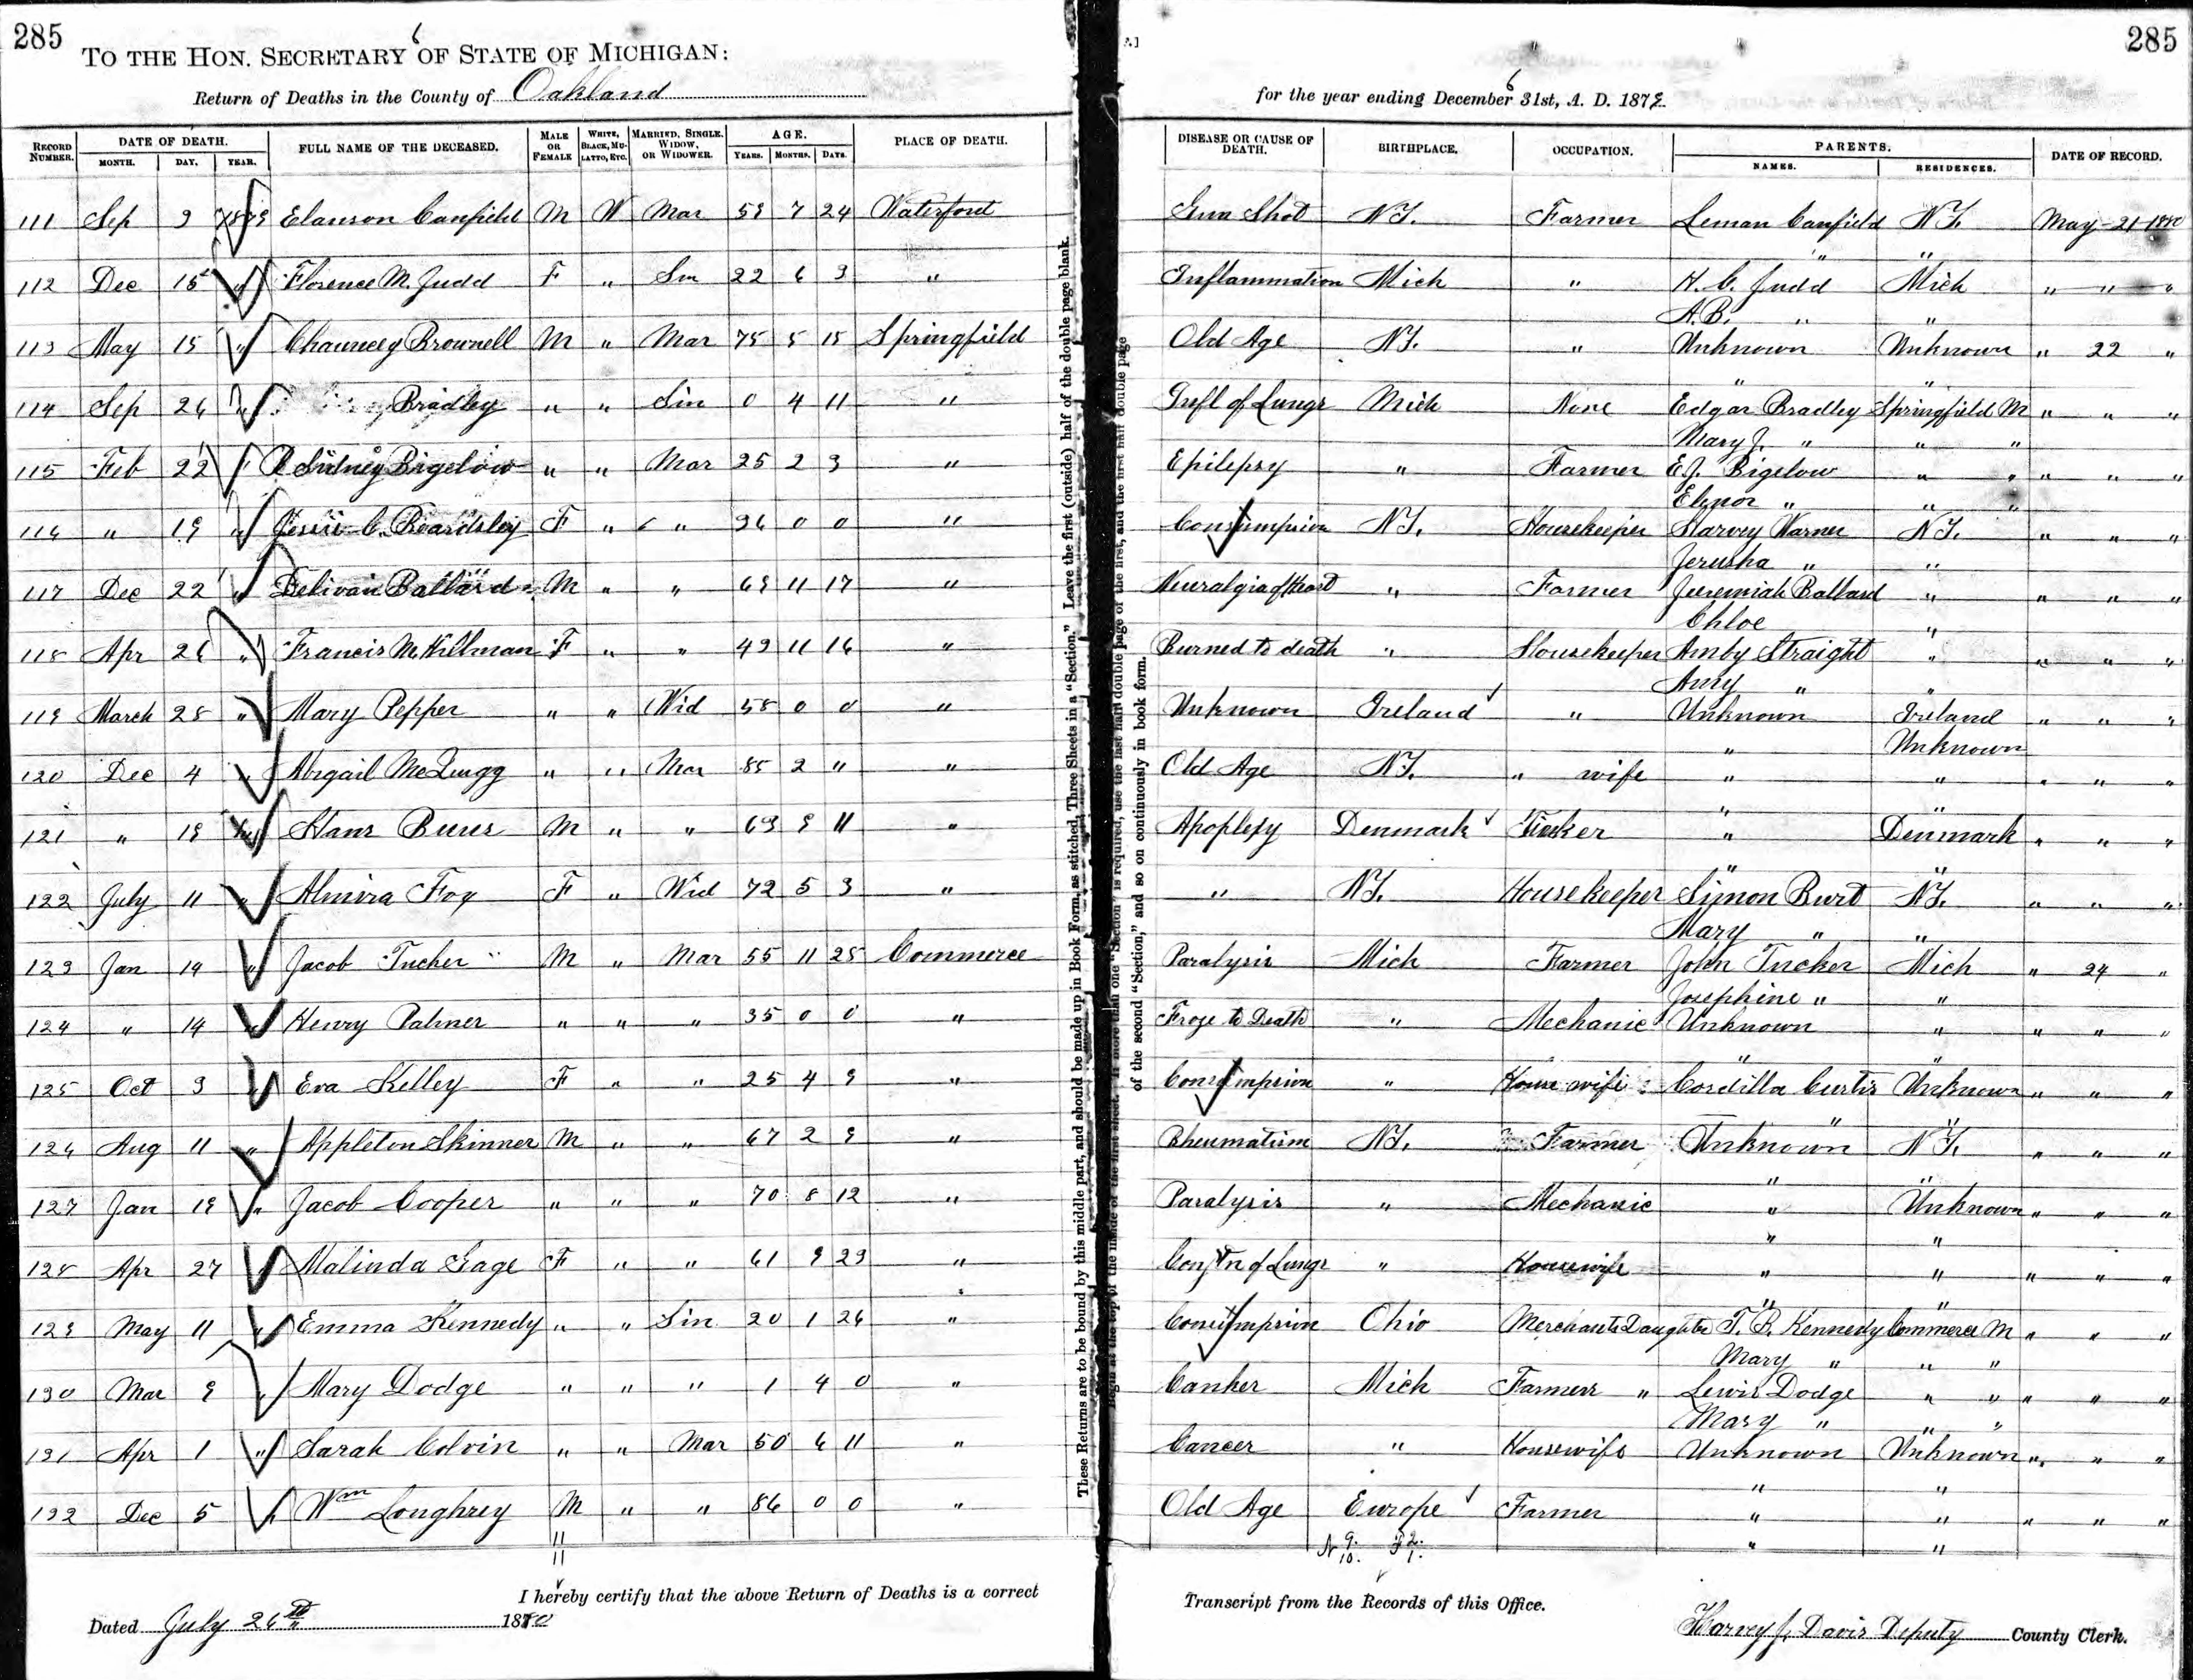 285
TO THE HON. SECRETARY OF STATE OF MICHIGAN:
6
Return of Deaths in the County of Oakland
RECORD NUMBER. DATE OF DEATH. MONTH. DAY. YEAR. FULL NAME OF THE DECEASED. MALE OR FEMALE WHITE, BLACK, MULATTO, ETC. MARRIED, SINGLE, WIDOW, OR WIDOWER. AGE. YEARS. MONTHS. DAYS. PLACE OF DEATH.
111 Sep 9 1879 Elanson Canfield M W Mar 59 7 24 Waterford
112 Dec 15 " Florence M. Judd F " Sin 22 6 3 "
113 May 15 " Chauncey Brownell M " Mar 75 5 15 Springfield
114 Sep 26 " Bradley " " Sin 0 4 11 "
115 Feb 22 " Sidney Bigelow " " Mar 25 2 3 "
116 " 19 " Jessie C. Beardsley F " " 36 0 0 "
117 Dec 22 " Delivan Ballard M " " 69 11 17 "
118 Apr 26 " Francis M. Killman F " " 49 11 16 "
119 March 28 " Mary Pepper " " Wid 58 0 0 "
120 Dec 4 " Abigail " " Mar 85 2 " "
121 " 19 " Hans M " " 69 9 11 "
122 July 11 " Almira Fox F " Wid 72 5 3 "
123 Jan 19 " Jacob Tucker M " Mar 55 11 28 Commerce
124 " 14 " Henry Palmer " " " 35 0 0 "
125 Oct 3 " Eva Kelley F " " 25 4 9 "
126 Aug 11 " Appleton Skinner M " " 67 2 9 "
127 Jan 19 " Jacob Cooper " " " 70 8 12 "
128 Apr 27 " Malinda Gage F " " 61 9 23 "
129 May 11 " Emma Kennedy " " Sin 20 1 26 "
130 Mar 9 " Mary Dodge " " " 1 4 0 "
131 Apr 1 " Sarah Colvin " " Mar 50 6 11 "
132 Dec 5 " Wm Loughrey M " " 86 0 0 "
11
11
I hereby certify that the above Return of Deaths is a correct
Dated July 26th 1880
These Returns are to be bound by this middle part, and should be made up in Book Form, as stitched, Three Sheets in a "Section." Leave the first (outside) half of the double page blank.
of the second "Section," and so on continuously in book form.
285
6
for the year ending December 31st, A. D. 1879.
DISEASE OR CAUSE OF DEATH. BIRTHPLACE. OCCUPATION. PARENTS. NAMES. RESIDENCES. DATE OF RECORD.
Gun Shot N.Y. Farmer Leman Canfield N.Y. May 21 1880
" "
Inflammation Mich " H. C. Judd Mich " " "
A. B. " "
Old Age N.Y. " Unknown Unknown " 22 "
" "
Infl of Lungs Mich None Edgar Bradley Springfield M " " "
Mary J. " " "
Epilepsy " Farmer E. J. Bigelow " " " " "
Elenor " " "
Consumption N.Y. Housekeeper Harvey Warner N.Y. " " "
Jerusha " "
Neuralgia of Heart " Farmer Jeremiah Ballard " " " "
Chloe "
Burned to death " Housekeeper Amby Straight " " " "
Amy " "
Unknown Ireland " Unknown Ireland " " "
" Unknown
Old Age N.Y. " wife " " " " "
" "
Apoplexy Denmark " Denmark " " "
" "
" N.Y. Housekeeper Simon Burt N.Y. " " "
Mary " "
Paralysis Mich Farmer John Tucker Mich " 24 "
Josephine " "
Froze to Death " Mechanic Unknown " " " "
" "
Consumption " Housewife Cordilla Curtis Unknown " " "
" "
Rheumatism N.Y. Farmer Unknown N.Y. " " "
" "
Paralysis " Mechanic " Unknown " " "
" "
Congtn of Lungs " Housewife " " " " "
" "
Consumption Ohio Merchants Daughter T. B. Kennedy Commerce M " " "
Mary " " "
Canker Mich Farmers " Lewis Dodge " " " " "
Mary " " "
Cancer " Housewife Unknown Unknown " " "
" "
Old Age Europe Farmer " " " " "
" "
N 9. F 2.
10. 1.
Transcript from the Records of this Office.
Harvey J. Davis Deputy County Clerk.